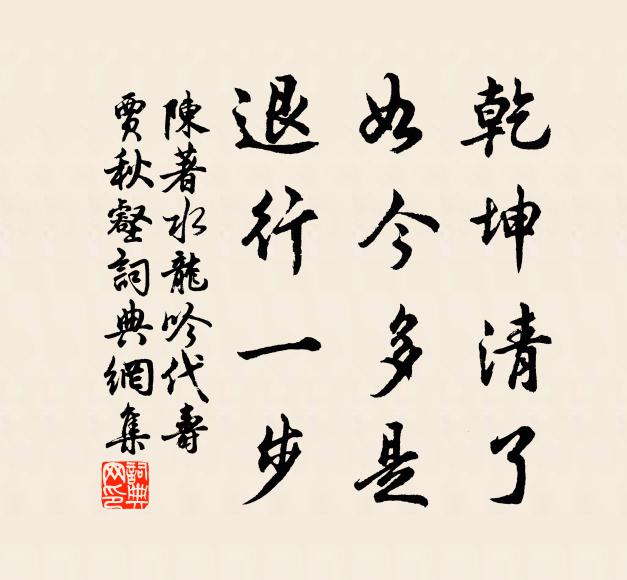 乾坤清了
如今多是
退行一步
陳著水龍吟代壽
賈秋壑詞典網集
詞典网印